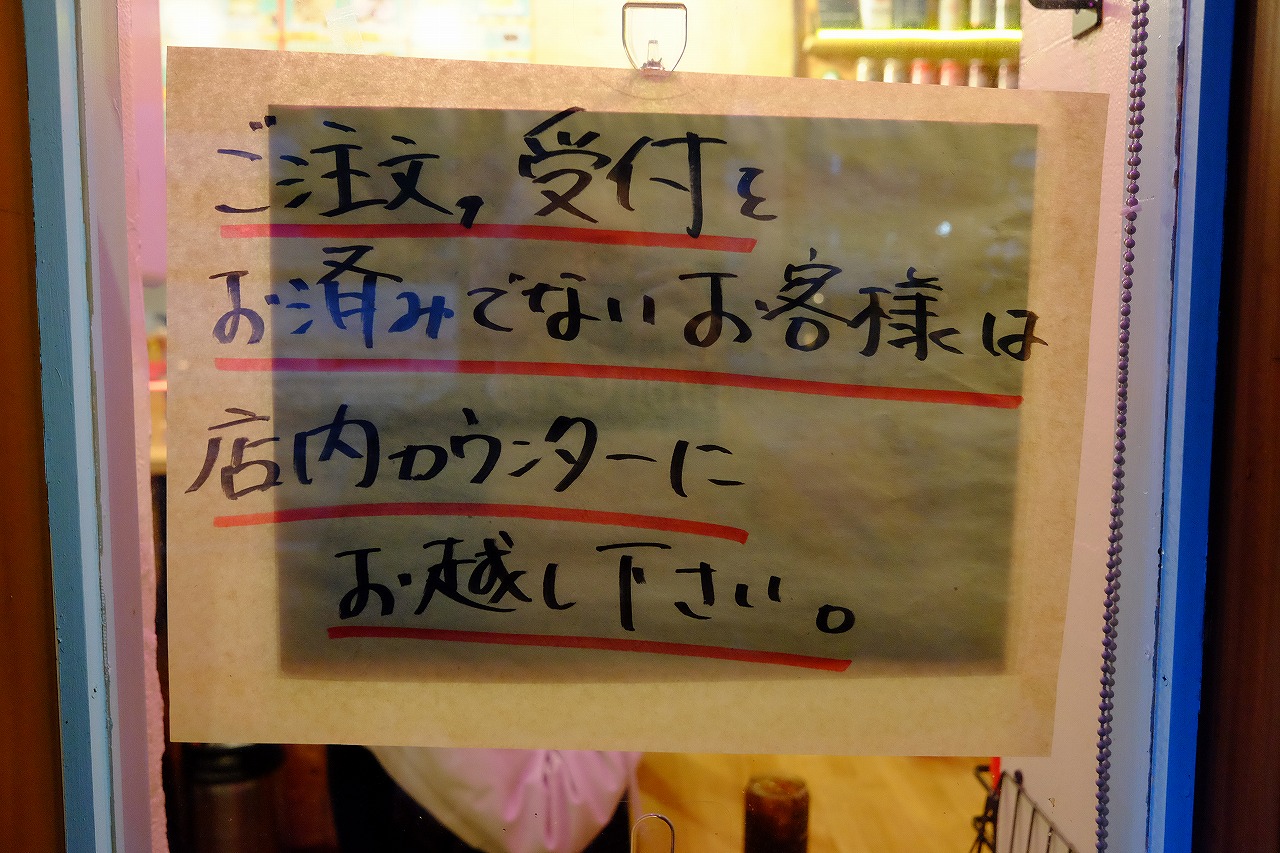 ご注文，受付を
お済みでないお客様は
店内カウンターに
お越し下さい。